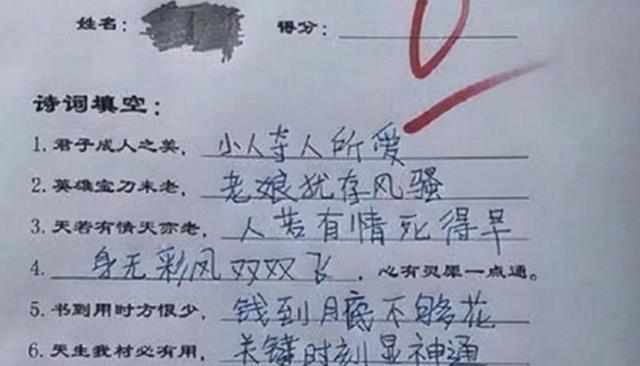 姓名: 得分:
诗词填空:
1. 君子成人之美, 小人夺人所爱
2. 英雄宝刀未老, 老娘犹存风骚
3. 天若有情天亦老, 人若有情死得早
4. 身无彩风双双飞, 心有灵犀一点通。
5. 书到用时方恨少, 钱到月底不够花
6. 天生我材必有用, 关键时刻显神通